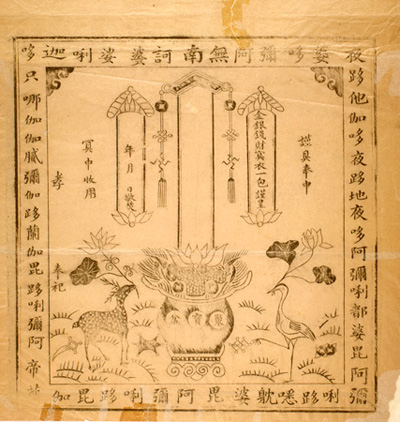 南無阿彌哆婆夜
跢他伽哆夜跢地夜哆阿彌唎都婆毘阿彌
唎跢悉躭婆毘阿彌唎跢毘伽
蘭帝阿彌唎跢毘伽蘭跢伽彌膩伽伽哪只哆
迦唎娑婆訶
謹具奉申
金銀錢財寶衣一包謹呈
年月 日敬焚
冥中收用
孝 奉祀
聚寶盆